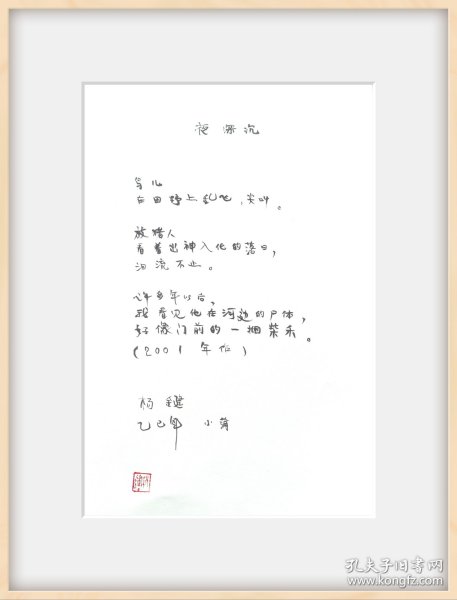 夜深沉
鸟儿
在田野上乱飞，尖叫。
放猪人
看着出神入化的落日，
泪流不止。
许多年以后，
我看见他在河边的尸体，
好像门前的一捆柴禾。
(2001年作)
杨键
乙巳年 小蒲
孔夫子旧书网
www.kongfz.com